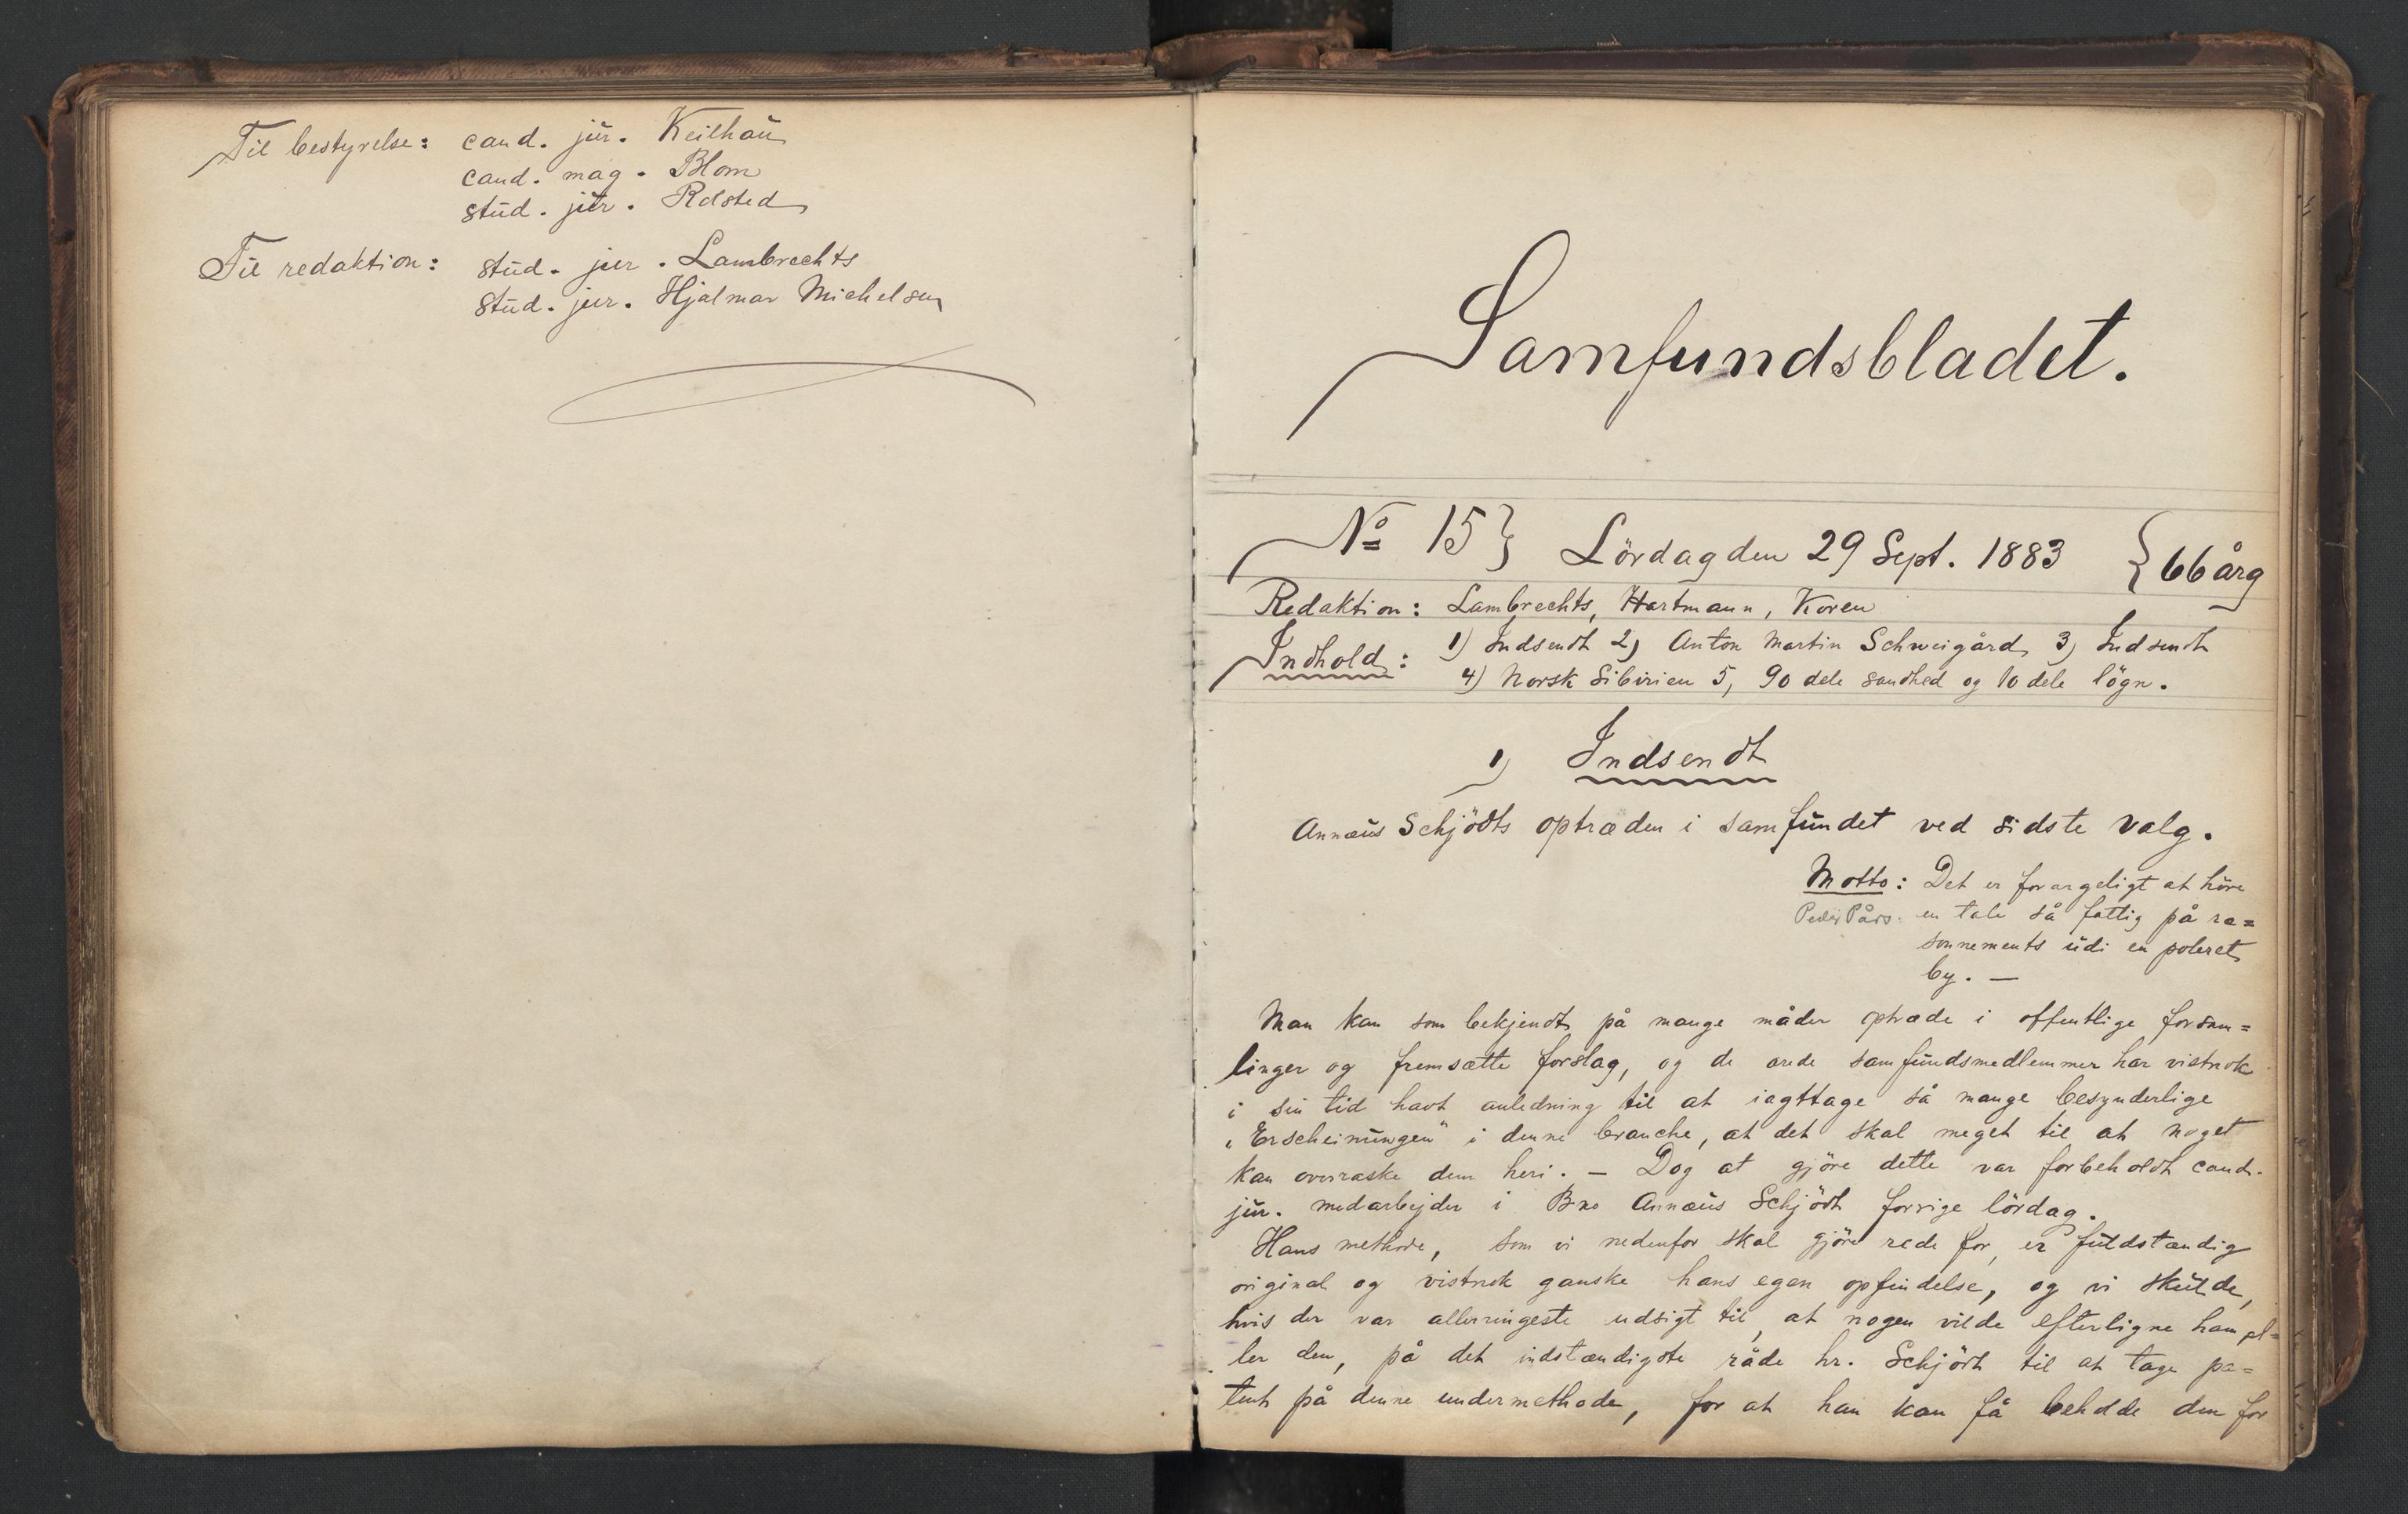 Til bestyrelse: cand. jur. Keilhau
cand. mag. Blom
stud. jur. Rolsted
Til redaktion: stud. jur. Lambrechts
stud. jur. Hjalmar Michelsen
Samfundsbladet.
No 15} Lördag den 29 Sept. 1883 {66 årg
Redaktion: Lambrechts, Hartmann, Koren
Indhold: 1) Indsendt 2) Anton Martin Schweigård, 3) Indsendt
4) Norsk Sibirien 5, 90 dele sandhed og 10 dele lögn.
1) Indsendt
Annæus Schjödts optræden i samfundet ved sidste valg.
Motto: Det er forargeligt at höre
Peder Pårs. en tale så fattig på ra=
sonnements udi en poleret
by. —
Man kan som bekjendt på mange måder optræde i offentlige forsam=
linger og fremsætte forslag, og de ærede samfundsmedlemmer har vistnok
i sin tid havt anledning til at iagttage så mange besynderlige
„Erscheinungen" i denne branche, at det skal meget til at noget
kan overraske dem heri. — Dog at gjöre dette var forbeholdt cand.
jur. medarbejder i Annæus Schjödt forrige lördag.
Hans methode, som vi nedenfor skal gjöre rede for, er fuldstændig
original og vistnok ganske hans egen opfindelse, og vi skulde,
hvis der var allerringeste udsigt til, at nogen vilde efterligne ham el=
ler den, på det indstændigste råde hr. Schjödt til at tage pa=
tent på denne undermethode, for at han kan få beholde den for